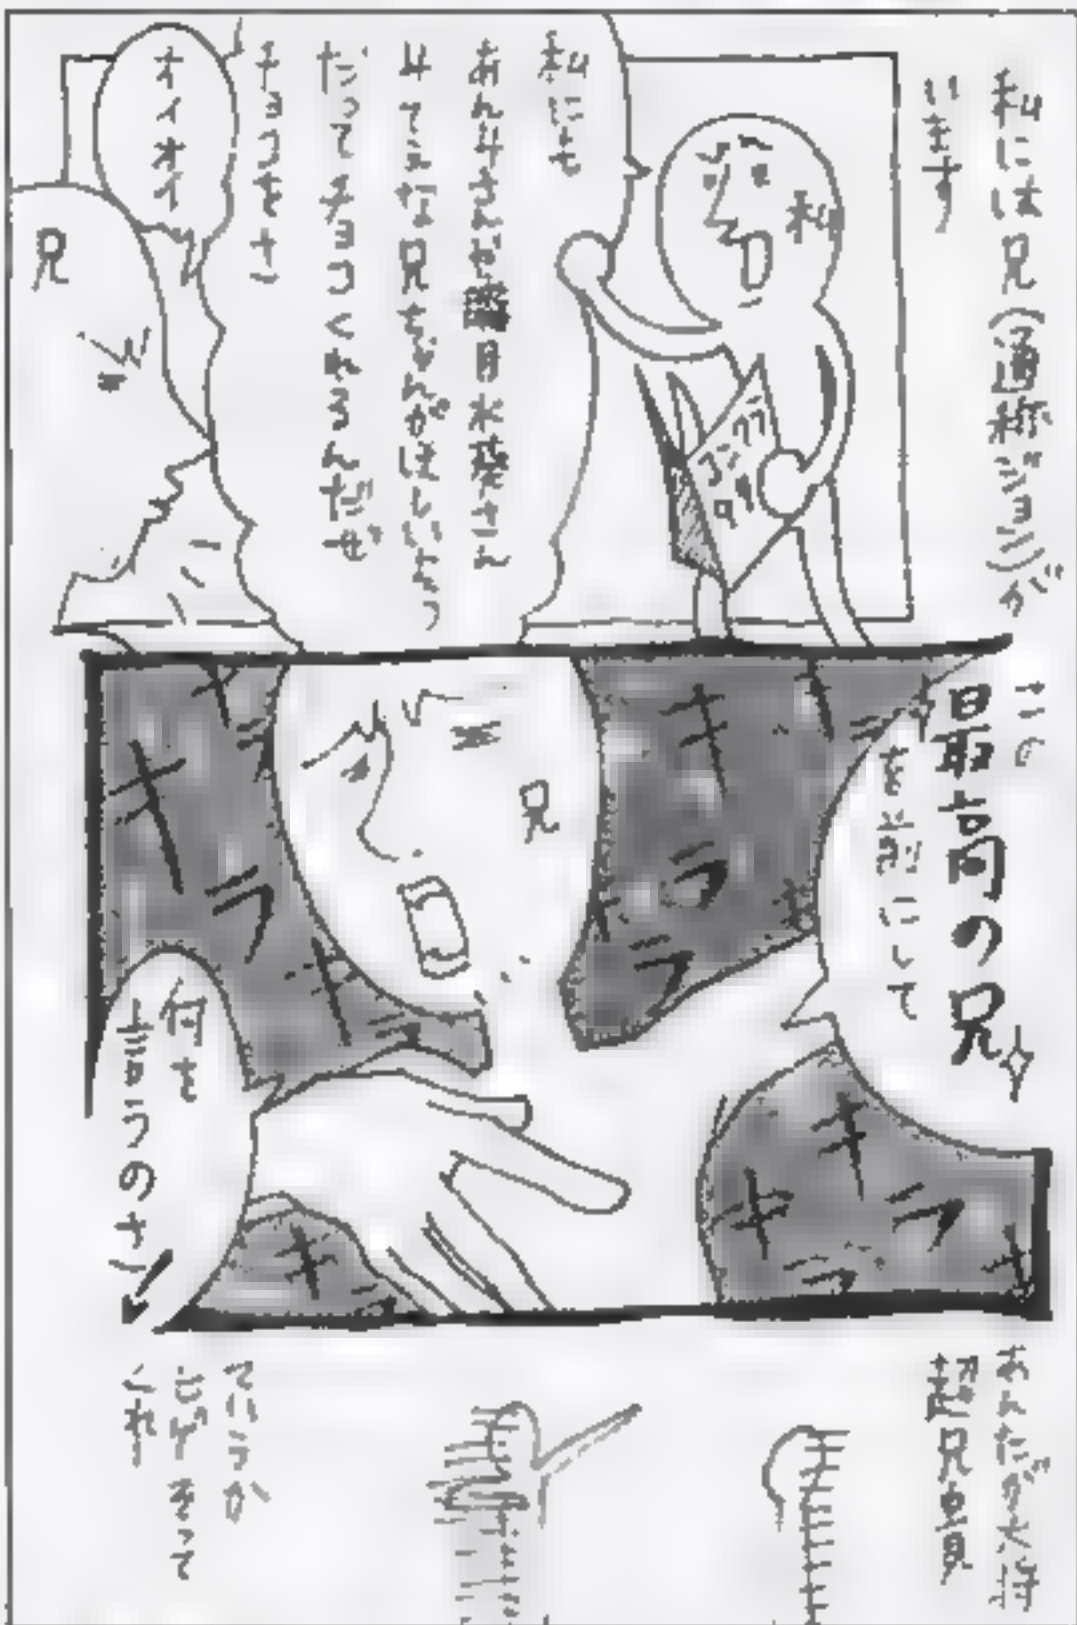 私には兄(通称ジョン)が
います
私
私にも
あんずさんが
日水葵さん
みてぇな兄ちゃんがほしいなっ
だってチョコくれるんだぜ
チョコをさ
オイオイ
兄
この
最高の兄
を前にして
キラ
キラ
キラ
キラ
兄
何を
言うのさ!
キラ
キラ
キ
あんたが大将
超兄貴
ていうか
ヒゲそって
これ